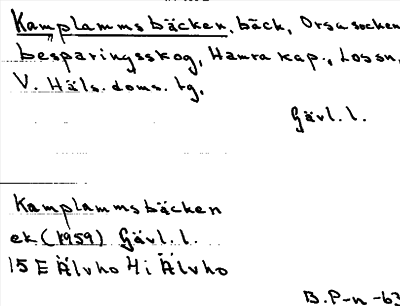 Kamplammsbäcken, bäck, Orsa socken
besparingsskog, Hamra kap., Lossn,
V. Häls. doms. tg,
Gävl. l.
Kamplammsbäcken
ek (1959) Gävl. l.
15 E Älvho 4i Älvho
B. P-n -63